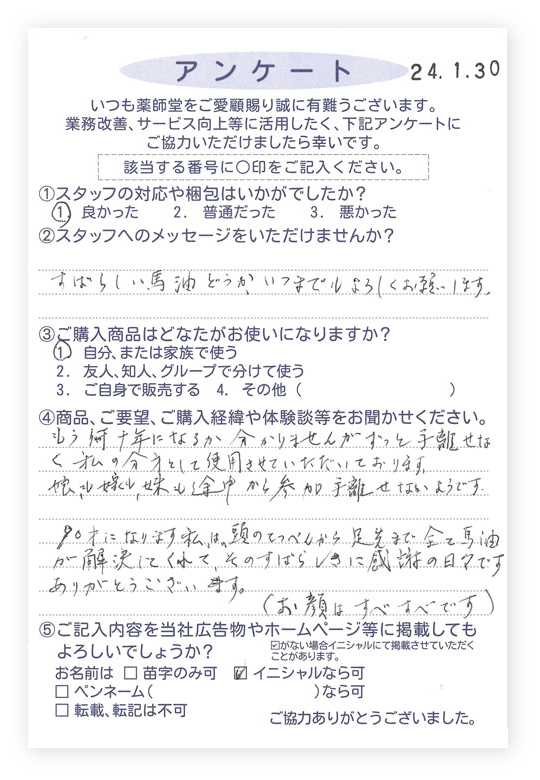 アンケート 24.1.30
いつも薬師堂をご愛顧賜り誠に有難うございます。
業務改善、サービス向上等に活用したく、下記アンケートに
ご協力いただけましたら幸いです。
該当する番号に○印をご記入ください。
①スタッフの対応や梱包はいかがでしたか?
1. 良かった 2. 普通だった 3. 悪かった
②スタッフへのメッセージをいただけませんか?
すばらしい馬油どうか、いつまでもよろしくお願いします。
③ご購入商品はどなたがお使いになりますか?
1. 自分、または家族で使う
2. 友人、知人、グループで分けて使う
3. ご自身で販売する 4. その他( )
④商品、ご要望、ご購入経緯や体験談等をお聞かせください。
もう何十年になるか分かりませんがずっと手離せな
く私の分身として使用させていただいております。
娘も嫁も妹も途中から参加手離せないようです。
90才になります私は、頭のてっぺんから足先まで全て馬油
が解決してくれて、そのすばらしさに感謝の日々です
ありがとうございます。
(お顔はすべすべです)
⑤ご記入内容を当社広告物やホームページ等に掲載しても
よろしいでしょうか? ☑がない場合イニシャルにて掲載させていただく
ことがあります。
お名前は □ 苗字のみ可 ☑ イニシャルなら可
□ ペンネーム( )なら可
□ 転載、転記は不可
ご協力ありがとうございました。